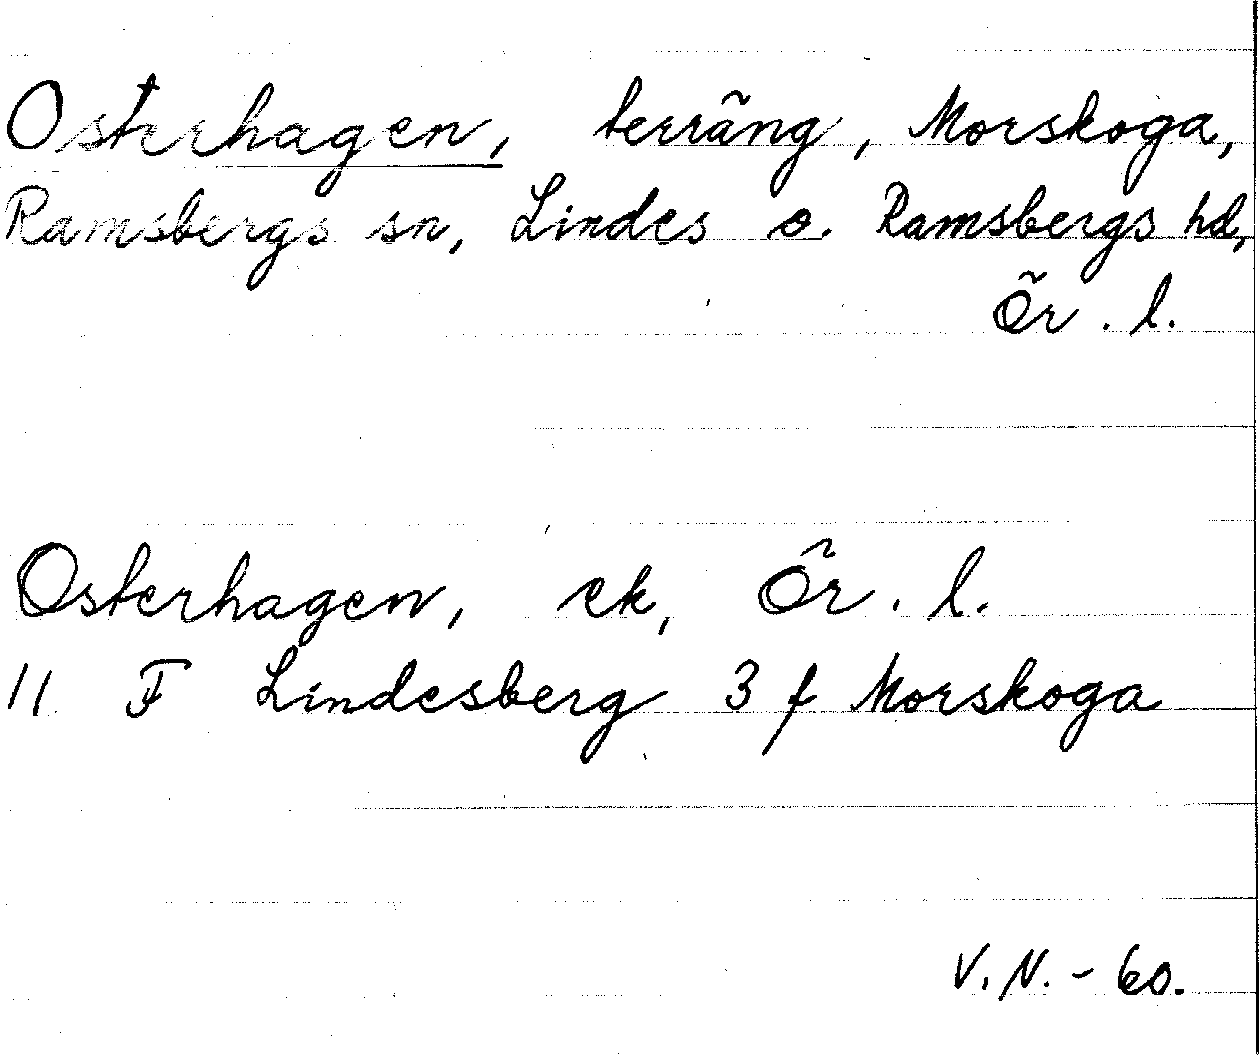 Osterhagen, terräng, Morskoga,
Ramsbergs sn, Lindes o. Ramsbergs hd,
Ör. l.
Osterhagen, ek, Ör. l.
11 F Lindesberg 3 f Morskoga
V. N. - 60.